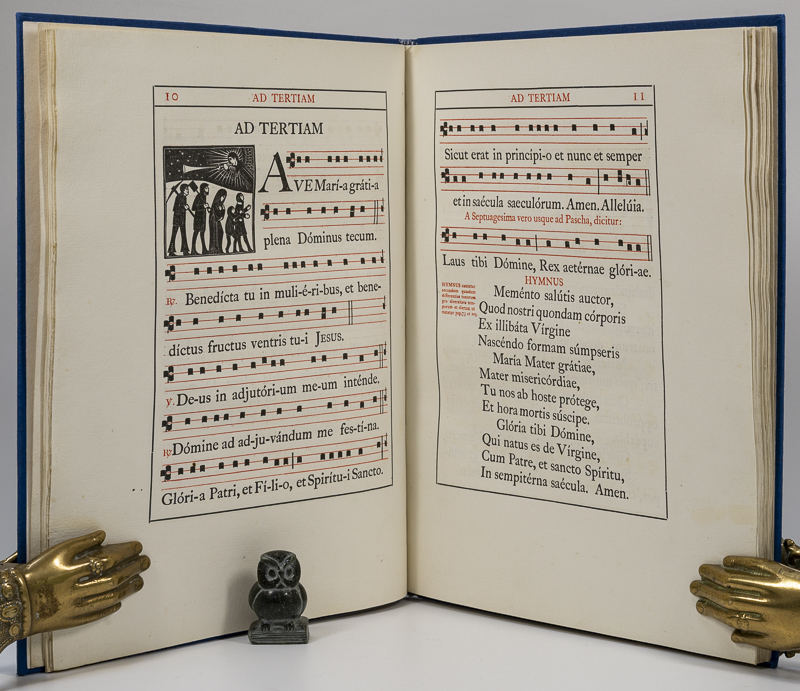 10 AD TERTIAM
AD TERTIAM
AVE Marí-a gráti-a
plena Dóminus tecum.
℟. Benedícta tu in muli-é-ri-bus, et bene-
díctus fructus ventris tu-i JESUS.
℣. De-us in adjutóri-um me-um inténde.
℟. Dómine ad ad-ju-vándum me fes-tí-na.
Glóri-a Patri, et Fí-li-o, et Spirítu-i Sancto.
AD TERTIAM 11
Sicut erat in princípi-o et nunc et semper
et in saécula saeculórum. Amen. Allelúia.
A Septuagesima vero usque ad Pascha, dicitur:
Laus tibi Dómine, Rex aetérnae glóri-ae.
HYMNUS
HYMNUS cantatur
secundum
Meménto salútis auctor,
Quod nostri quondam córporis
Ex illibáta Vírgine
Nascéndo formam súmpseris
María Mater grátiae,
Mater misericórdiae,
Tu nos ab hoste prótege,
Et hora mortis súscipe.
Glória tibi Dómine,
Qui natus es de Vírgine,
Cum Patre, et sancto Spíritu,
In sempitérna saécula. Amen.